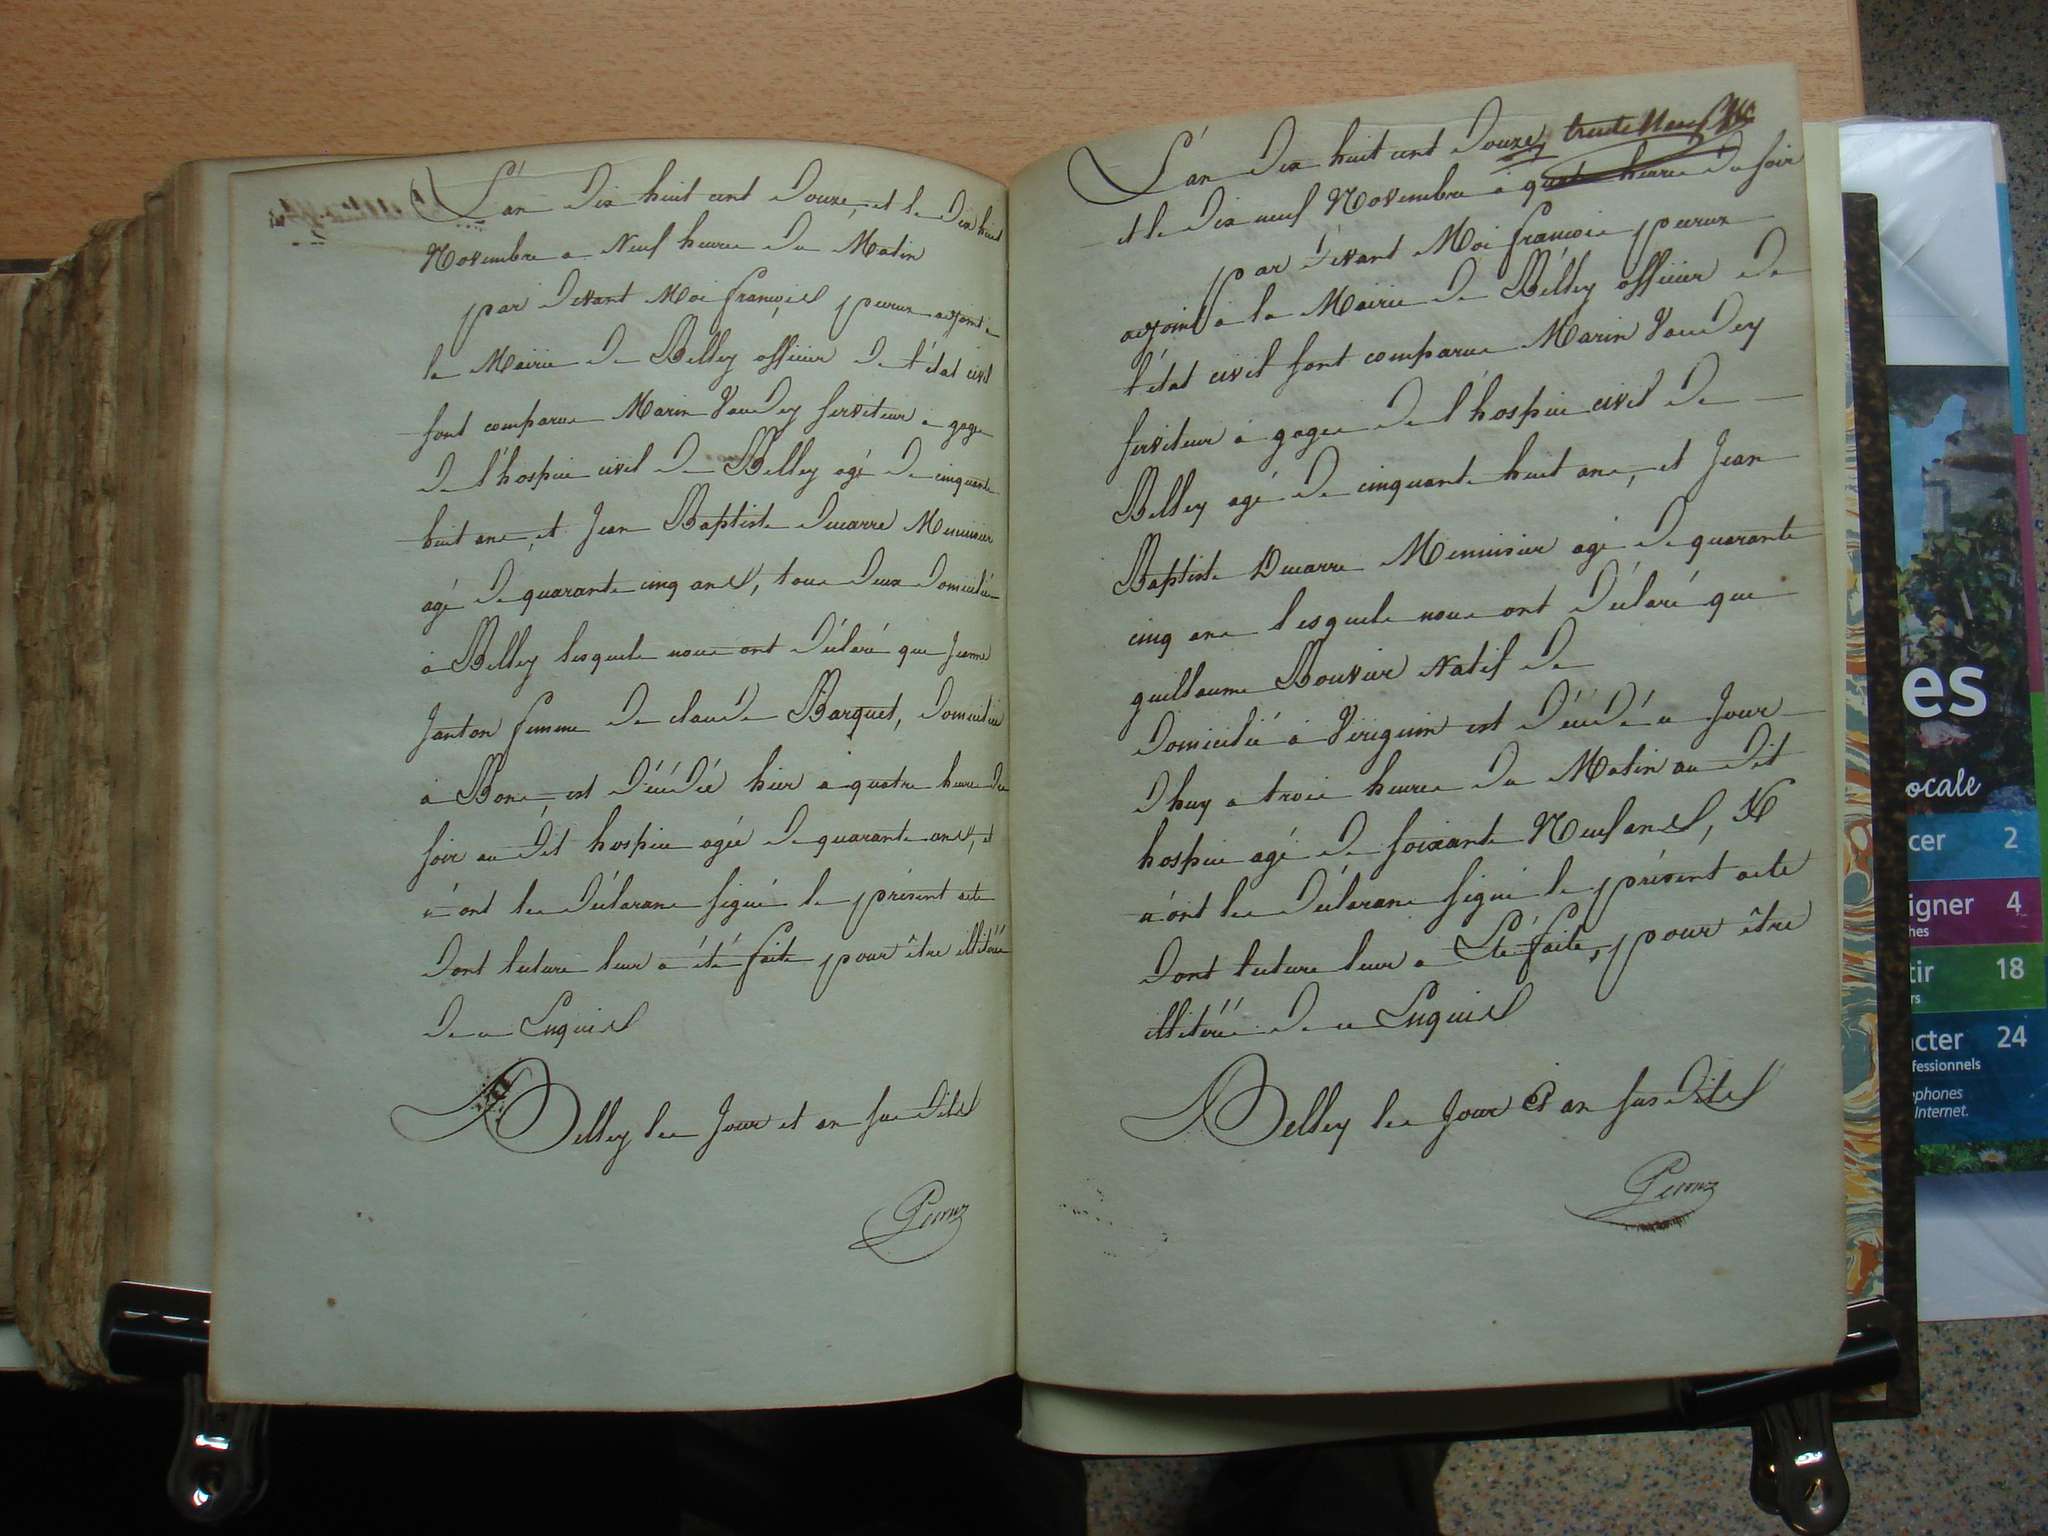 L'an dix huit cent douze, et le dix huit
Novembre a Neuf heures du Matin
par devant Moi françois peruz adjoint a
la Mairie de Belley officier de l'état civil
sont comparus Marin Vaudey serviteur a gage
de l'hospice civil de Belley agé de cinquante
huit ans, et Jean Baptiste Ducarre Menuisier
agé de quarante cinq ans, tous deux domiciliés
a Belley lesquels nous ont déclaré que Jeanne
Janton femme de claude Barquet, domiciliée
a Bons, est décédée hier a quatre heures du
soir au dit hospice agée de quarante ans, et
n'ont les déclarans signé le présent acte
dont lecture leur a été faite pour être illitérés
de ce Enquis
A Belley les Jour et an sus dits
L'an dix huit cent douze, trente Neuf
et le dix neuf Novembre a quatre heures du soir
par devant Moi françois peruz
adjoint a la Mairie de Belley officier de
l'état civil sont comparus Marin Vaudey
serviteur a gages de l'hospice civil de
Belley agé de cinquante huit ans, et Jean
Baptiste Ducarre Menuisier agé de quarante
cinq ans lesquels nous ont déclaré que
guillaume Bouvier Natif de
domicilié a Virignin est décédé ce Jour
dhuy a trois heures du Matin au dit
hospice agé de soixante Neuf ans,
n'ont les déclarans signé le présent acte
dont lecture leur a Eté faite, pour être
illitérés de ce Enquis
A Belley les Jour Et an sus dits
es
ocale
cer 2
igner 4
hes
tir 18
rs
acter 24
fessionnels
éphones
Internet.